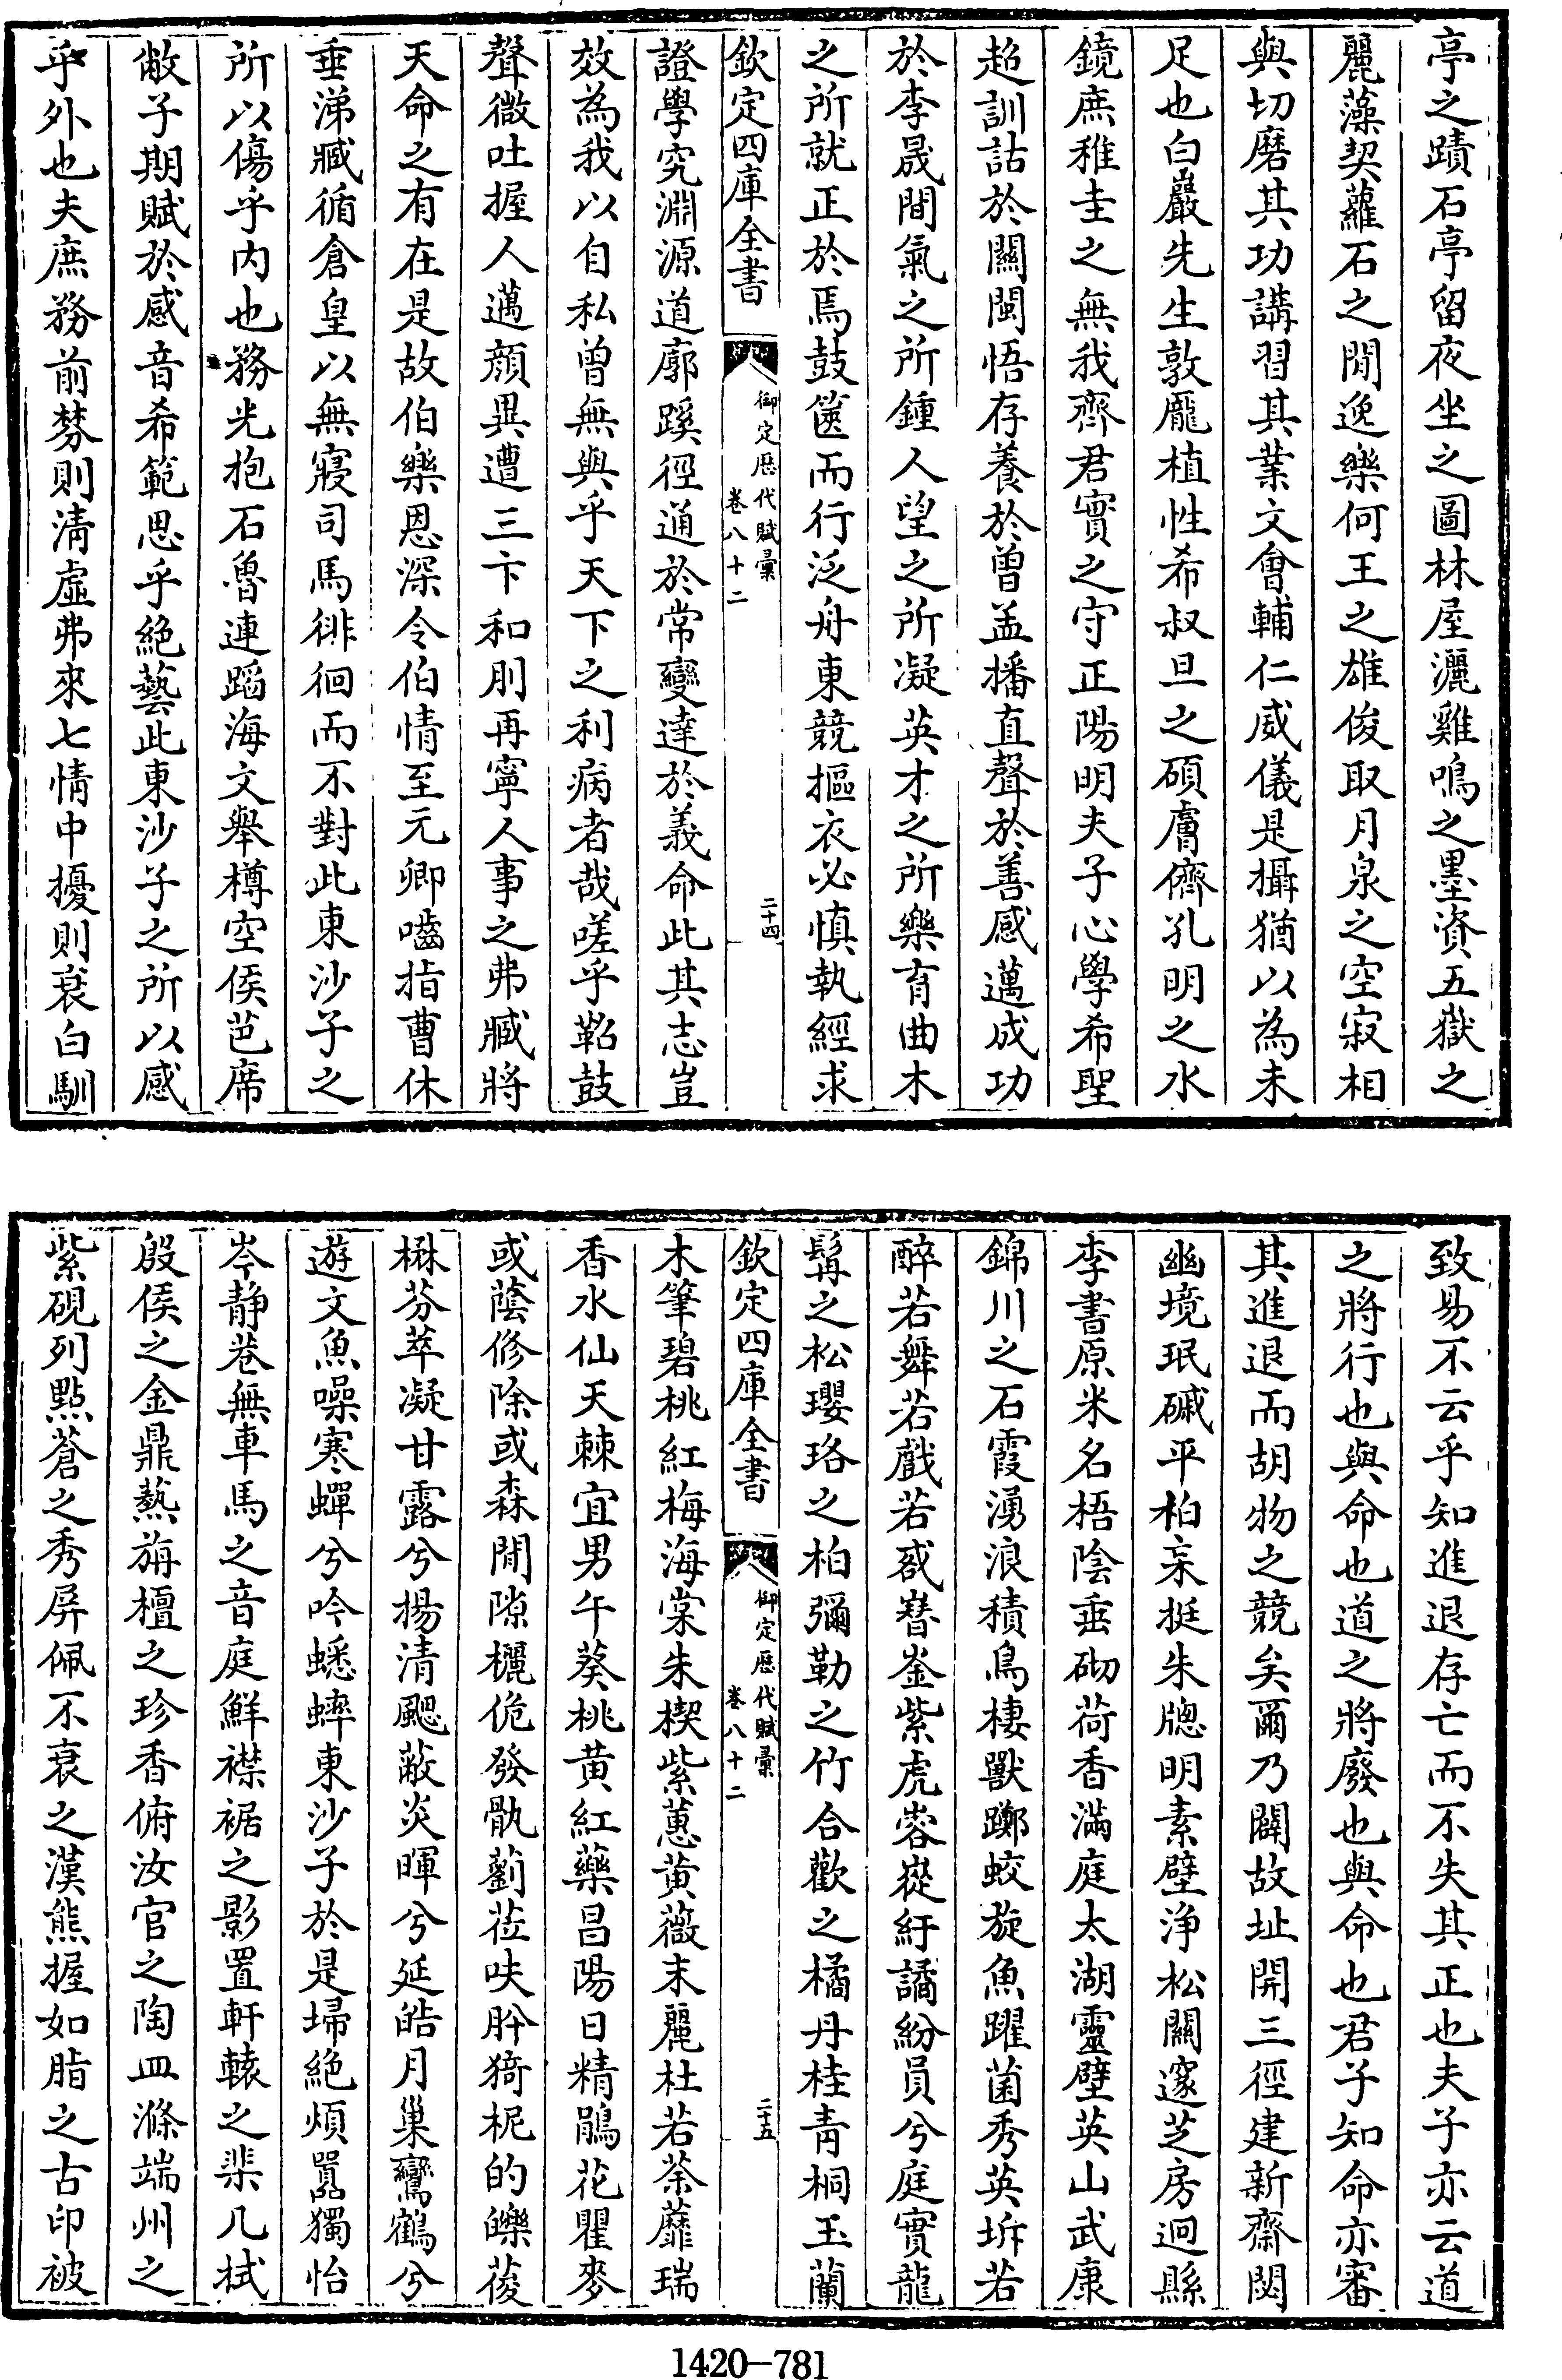 亭之蹟石亭留夜坐之圖林屋灑雞鳴之墨資五嶽之
麗藻契蘿石之閒逸樂何王之雄俊取月泉之空寂相
與切磨其功講習其業文會輔仁威儀是攝猶以為未
足也白巖先生敦龐植性希叔旦之碩膚儕孔明之水
鏡庶稚圭之無我齊君實之守正陽明夫子心學希聖
超訓詁於關閩悟存養於曾孟播直聲於善感邁成功
於李晟間氣之所鍾人望之所凝英才之所樂育曲木
之所就正於焉鼓篋而行泛舟東競摳衣必慎執經求
欽定四庫全書
御定歷代賦彙
卷八十二
二十四
證學究淵源道廓蹊徑通於常變達於義命此其志豈
效為我以自私曾無與乎天下之利病者哉嗟乎鞀鼓
聲微吐握人邁顏異遭三卞和刖再寧人事之弗臧將
天命之有在是故伯樂恩深令伯情至元卿嚙指曹休
垂涕臧循倉皇以無寢司馬徘徊而不對此東沙子之
所以傷乎内也務光抱石魯連蹈海文舉樽空侯芭席
敝子期賦於感音希範思乎絕藝此東沙子之所以感
乎外也夫庶務前棼則清虛弗來七情中擾則衰白馴
致易不云乎知進退存亡而不失其正也夫子亦云道
之將行也與命也道之將廢也與命也君子知命亦審
其進退而胡物之競矣爾乃闢故址開三徑建新齋閎
幽境珉磩平柏宋挺朱牎明素壁淨松關邃芝房迥縣
李書原米名梧陰垂砌荷香滿庭太湖靈璧英山武康
錦川之石霞湧浪積鳥棲獸躑蛟旋魚躍菌秀英坼若
醉若舞若戲若惑嶜崟紫虎嵱嵷紆譎紛員兮庭實龍
髯之松瓔珞之柏彌勒之竹合歡之橘丹桂青桐玉蘭
欽定四庫全書
御定歷代賦彙
卷八十二
二十五
木筆碧桃紅梅海棠朱楔紫蕙黄薇末麗杜若荼蘼瑞
香水仙天棘宜男午葵桃黄紅藥昌陽日精鵑花瞿麥
或蔭修除或森閒隙欐佹發骫藰莅呋肸猗柅的皪葰
楙芬萃凝甘露兮揚清飔蔽炎暉兮延皓月巢鸞鶴兮
遊文魚噪寒蟬兮吟蟋蟀東沙子於是埽絕煩囂獨怡
岑靜巷無車馬之音庭鮮襟裾之影置軒轅之棐几拭
殷侯之金鼎爇旃檀之珍香俯汝官之陶皿滌端州之
紫硯列點蒼之秀屏佩不衰之漢熊握如脂之古印被
1420—781